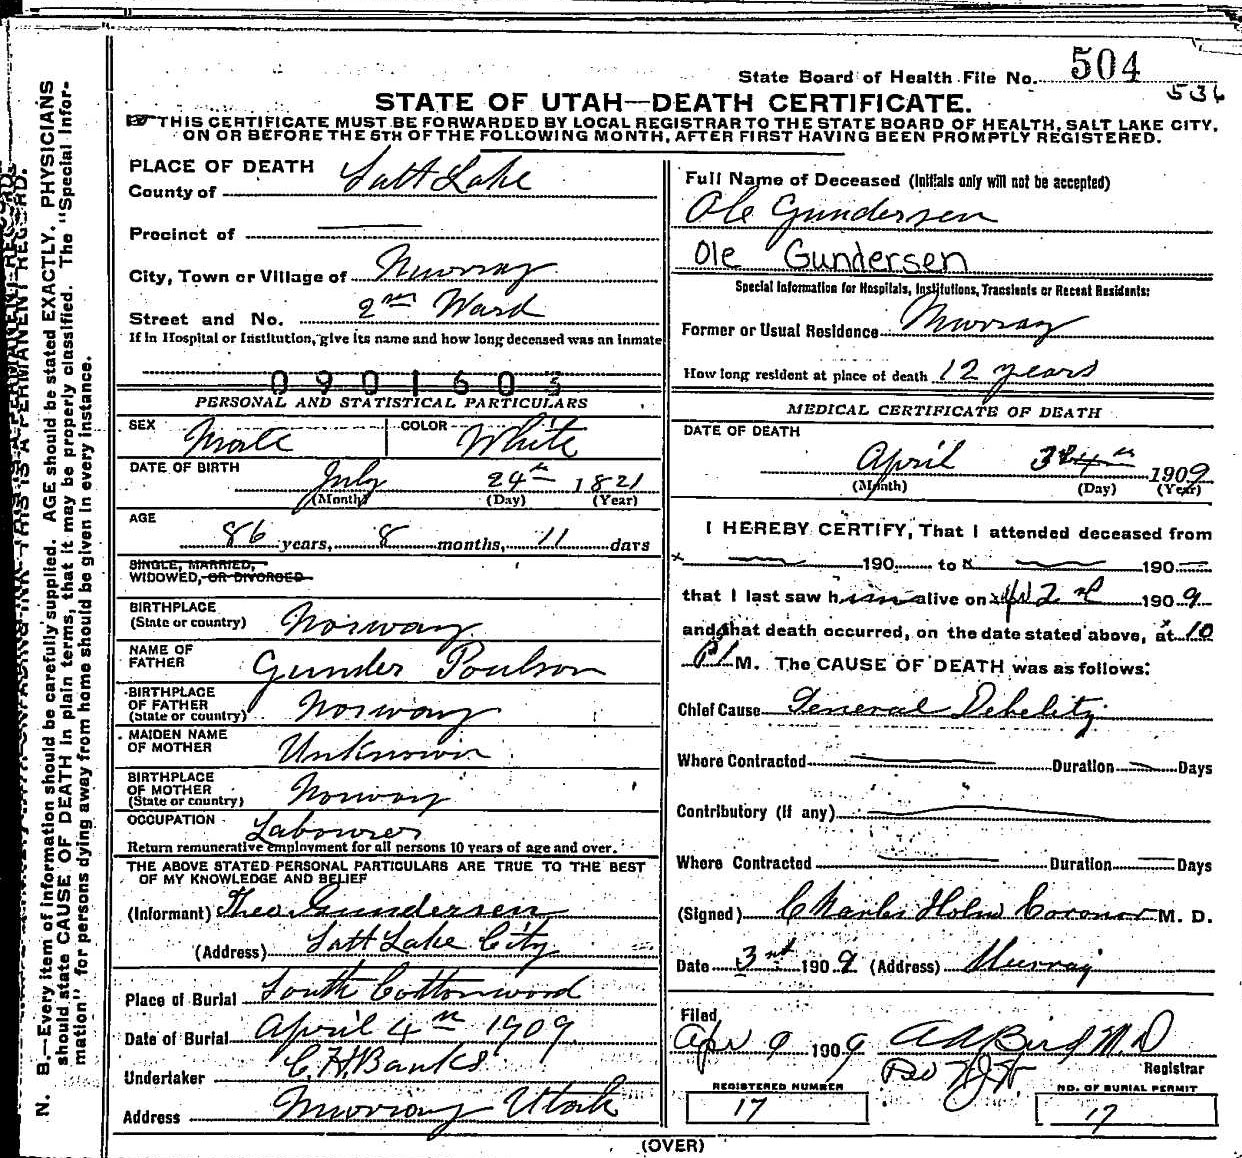 State Board of Health File No. 504
536
STATE OF UTAH—DEATH CERTIFICATE.
THIS CERTIFICATE MUST BE FORWARDED BY LOCAL REGISTRAR TO THE STATE BOARD OF HEALTH, SALT LAKE CITY,
ON OR BEFORE THE 5TH OF THE FOLLOWING MONTH, AFTER FIRST HAVING BEEN PROMPTLY REGISTERED.
PLACE OF DEATH
County of Salt Lake
Precinct of
City, Town or Village of Murray
Street and No. 2nd Ward
If in Hospital or Institution, give its name and how long deceased was an inmate
0901603
PERSONAL AND STATISTICAL PARTICULARS
SEX Male COLOR White
DATE OF BIRTH
July 24th 1821
(Month) (Day) (Year)
AGE
86 years, 8 months, 11 days
SINGLE, MARRIED,
WIDOWED, OR DIVORCED
BIRTHPLACE
(State or country) Norway
NAME OF
FATHER Gunder Poulson
BIRTHPLACE
OF FATHER
(State or country) Norway
MAIDEN NAME
OF MOTHER Unknown
BIRTHPLACE
OF MOTHER
(State or country) Norway
OCCUPATION Labourer
Return remunerative employment for all persons 10 years of age and over.
THE ABOVE STATED PERSONAL PARTICULARS ARE TRUE TO THE BEST
OF MY KNOWLEDGE AND BELIEF
(Informant) Theo. Gundersen
(Address) Salt Lake City
Place of Burial South Cottonwood
Date of Burial April 4th 1909
Undertaker C. H. Banks
Address Murray Utah
Full Name of Deceased (Initials only will not be accepted)
Ole Gundersen
Ole Gundersen
Special Information for Hospitals, Institutions, Transients or Recent Residents:
Former or Usual Residence Murray
How long resident at place of death 12 years
MEDICAL CERTIFICATE OF DEATH
DATE OF DEATH
April 3d 4th 1909
(Month) (Day) (Year)
I HEREBY CERTIFY, That I attended deceased from
190 to 190
that I last saw him alive on 2nd 1909
and that death occurred, on the date stated above, at 10
P. M. The CAUSE OF DEATH was as follows:
Chief Cause General Debelity
Where Contracted Duration Days
Contributory (if any)
Where Contracted Duration Days
(Signed) Charles Holm Coroner M. D.
Date 3rd 1909 (Address) Murray
Filed
Apr 9 1909 M.D
Registrar
REGISTERED NUMBER
17
NO. OF BURIAL PERMIT
17
(OVER)
N. B.—Every item of information should be carefully supplied. AGE should be stated EXACTLY. PHYSICIANS
should state CAUSE OF DEATH in plain terms, that it may be properly classified. The "Special Infor-
mation" for persons dying away from home should be given in every instance.